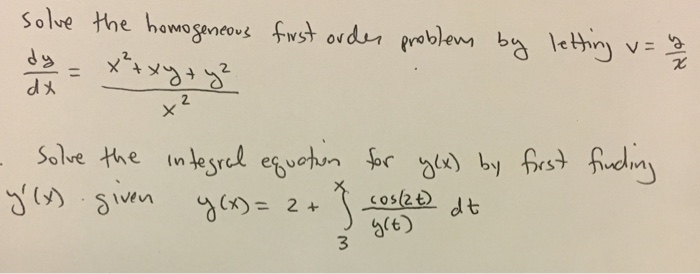 Solve the homogeneous first order problem by letting v = y/x
dy/dx = (x² + xy + y²)/x²
Solve the integral equation for y(x) by first finding
y'(x). given y(x) = 2 + ∫₃ˣ cos(2t)/y(t) dt